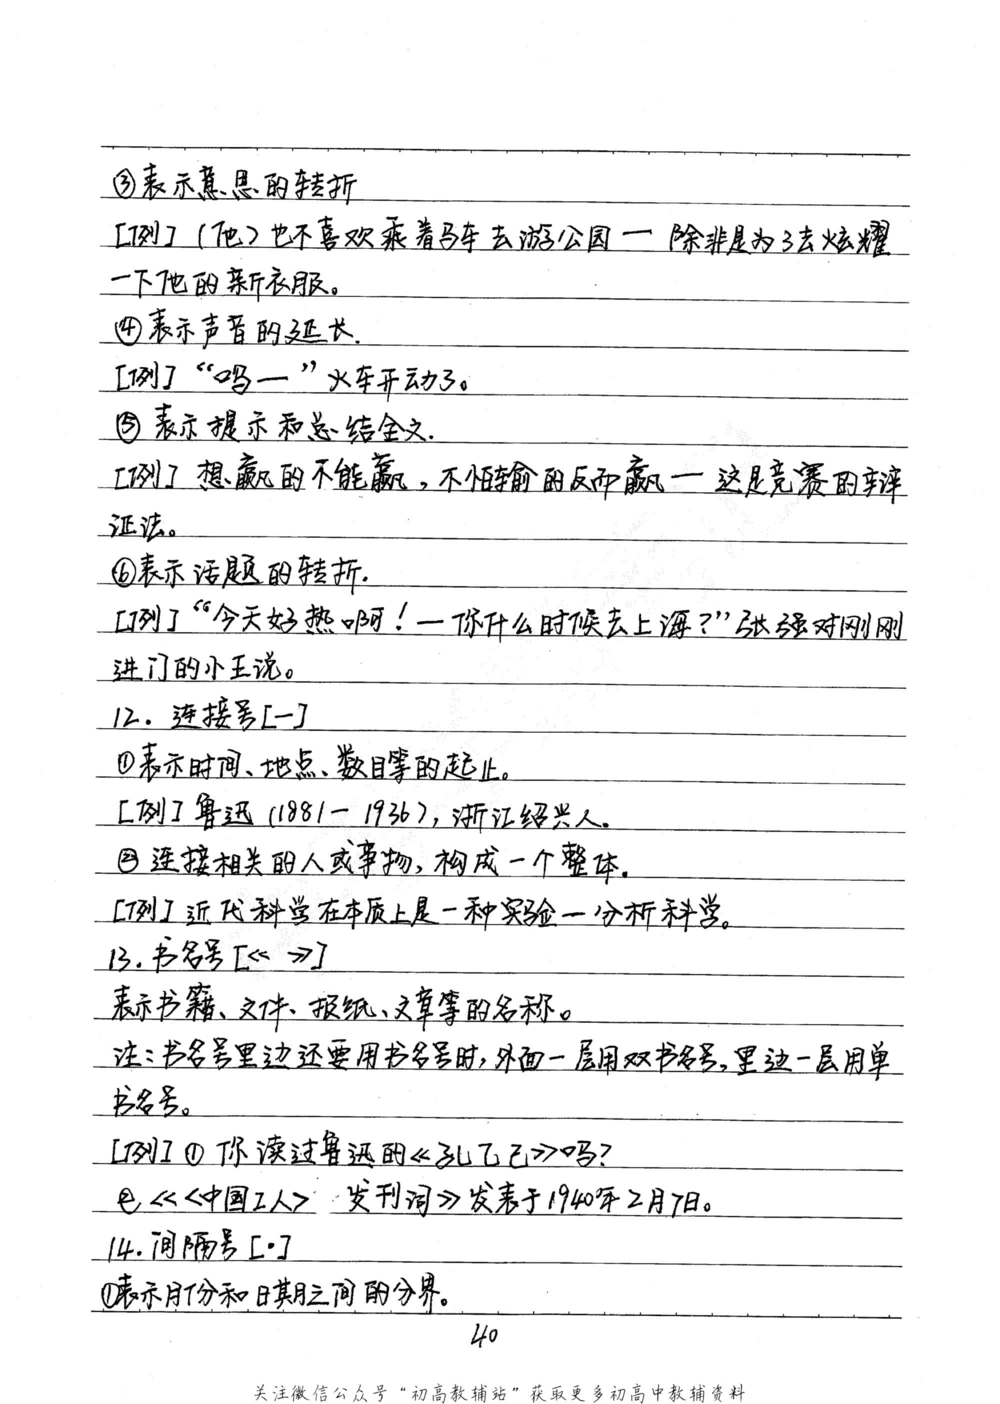 ③表示意思的转折
[例](他)也不喜欢乘着马车去游公园一 除非是为了去炫耀
一下他的新衣服。
④表示声音的延长.
[例]“呜一”火车开动了。
⑤表示提示和总结全文.
[例]想赢的不能赢,不怕输的反而赢一 这是竞赛的辩
证法。
⑥表示话题的转折.
[例]“今天好热啊!一你什么时候去上海?”张强对刚刚
进门的小王说。
12.连接号[一]
①表示时间、地点、数目等的起止。
[例]鲁迅(1881一1936),浙江绍兴人.
②连接相关的人或事物,构成一个整体.
[例]近代科学在本质上是一种实验一分析科学。
13.书名号[《 》]
表示书籍、文件、报纸、文章等的名称。
注:书名号里边还要用书名号时,外面一层用双书名号,里边一层用单
书名号。
[例]①你读过鲁迅的《孔乙己》吗?
②《〈中国工人〉 发刊词》发表于1940年2月7日。
14.间隔号[·]
①表示月份和日期之间的分界。
40
关注微信公众号“初高教辅站”获取更多初高中教辅资料